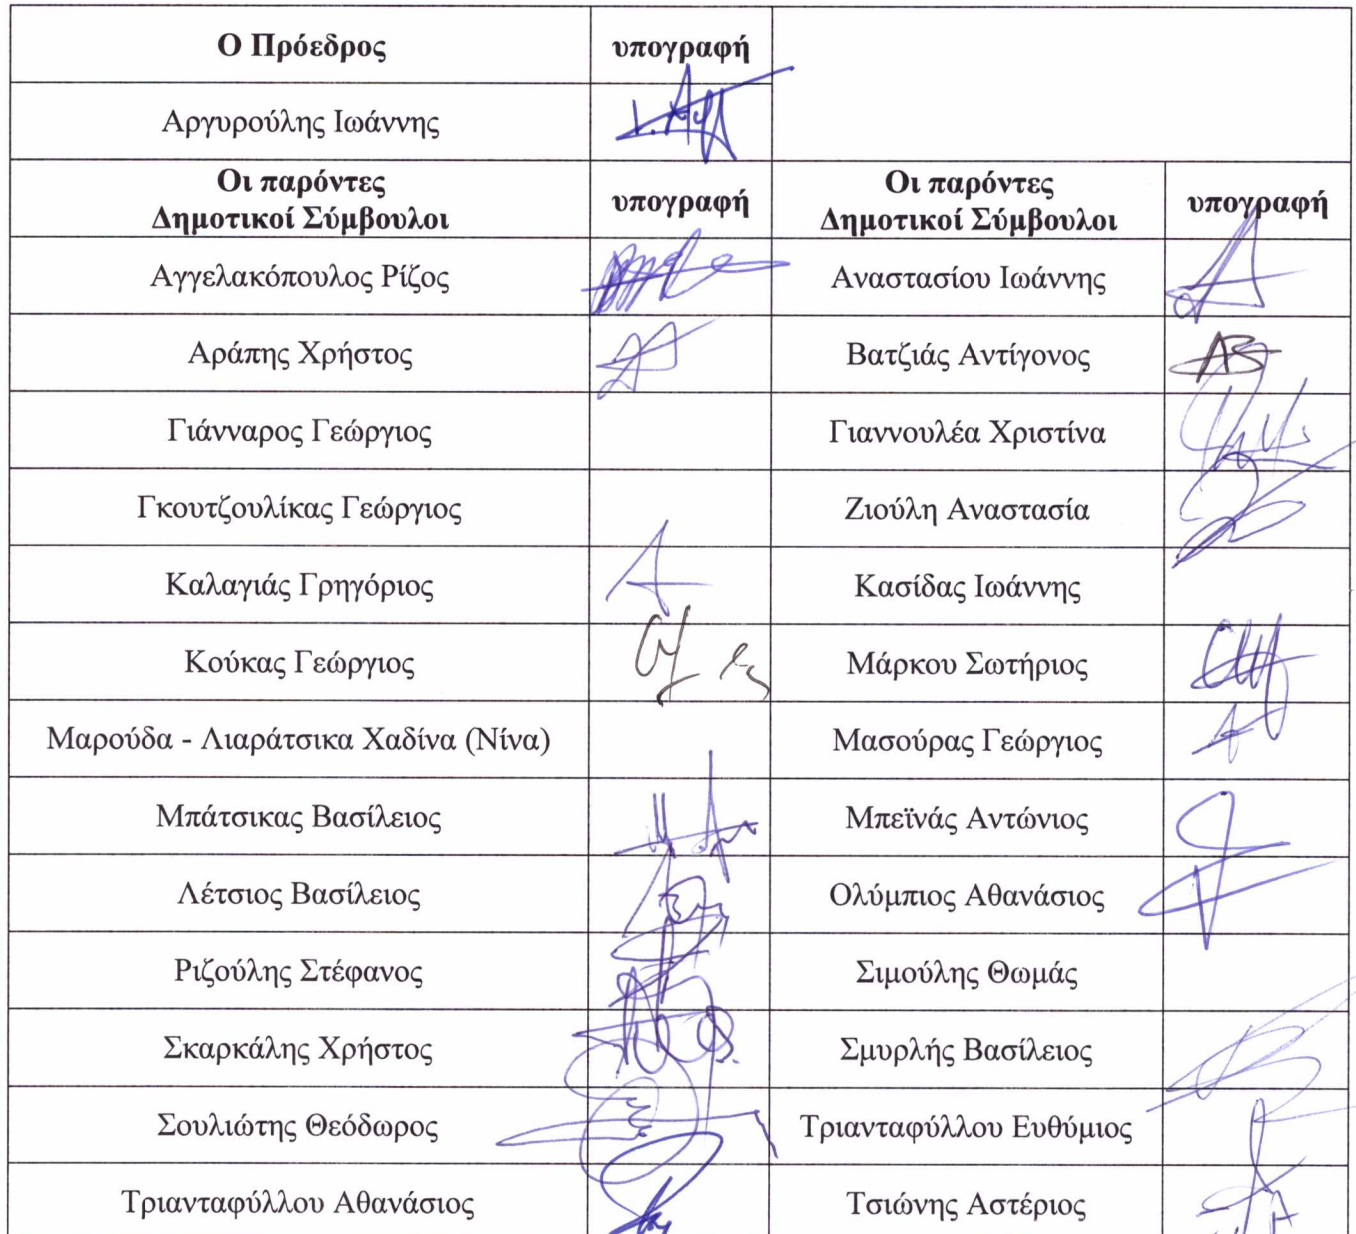 Ο Πρόεδρος υπογραφή
Αργυρούλης Ιωάννης
Οι παρόντες
Δημοτικοί Σύμβουλοι υπογραφή Οι παρόντες
Δημοτικοί Σύμβουλοι υπογραφή
Αγγελακόπουλος Ρίζος Αναστασίου Ιωάννης
Αράπης Χρήστος Βατζιάς Αντίγονος
Γιάνναρος Γεώργιος Γιαννουλέα Χριστίνα
Γκουτζουλίκας Γεώργιος Ζιούλη Αναστασία
Καλαγιάς Γρηγόριος Κασίδας Ιωάννης
Κούκας Γεώργιος Μάρκου Σωτήριος
Μαρούδα - Λιαράτσικα Χαδίνα (Νίνα) Μασούρας Γεώργιος
Μπάτσικας Βασίλειος Μπεϊνάς Αντώνιος
Λέτσιος Βασίλειος Ολύμπιος Αθανάσιος
Ριζούλης Στέφανος Σιμούλης Θωμάς
Σκαρκάλης Χρήστος Σμυρλής Βασίλειος
Σουλιώτης Θεόδωρος Τριανταφύλλου Ευθύμιος
Τριανταφύλλου Αθανάσιος Τσιώνης Αστέριος